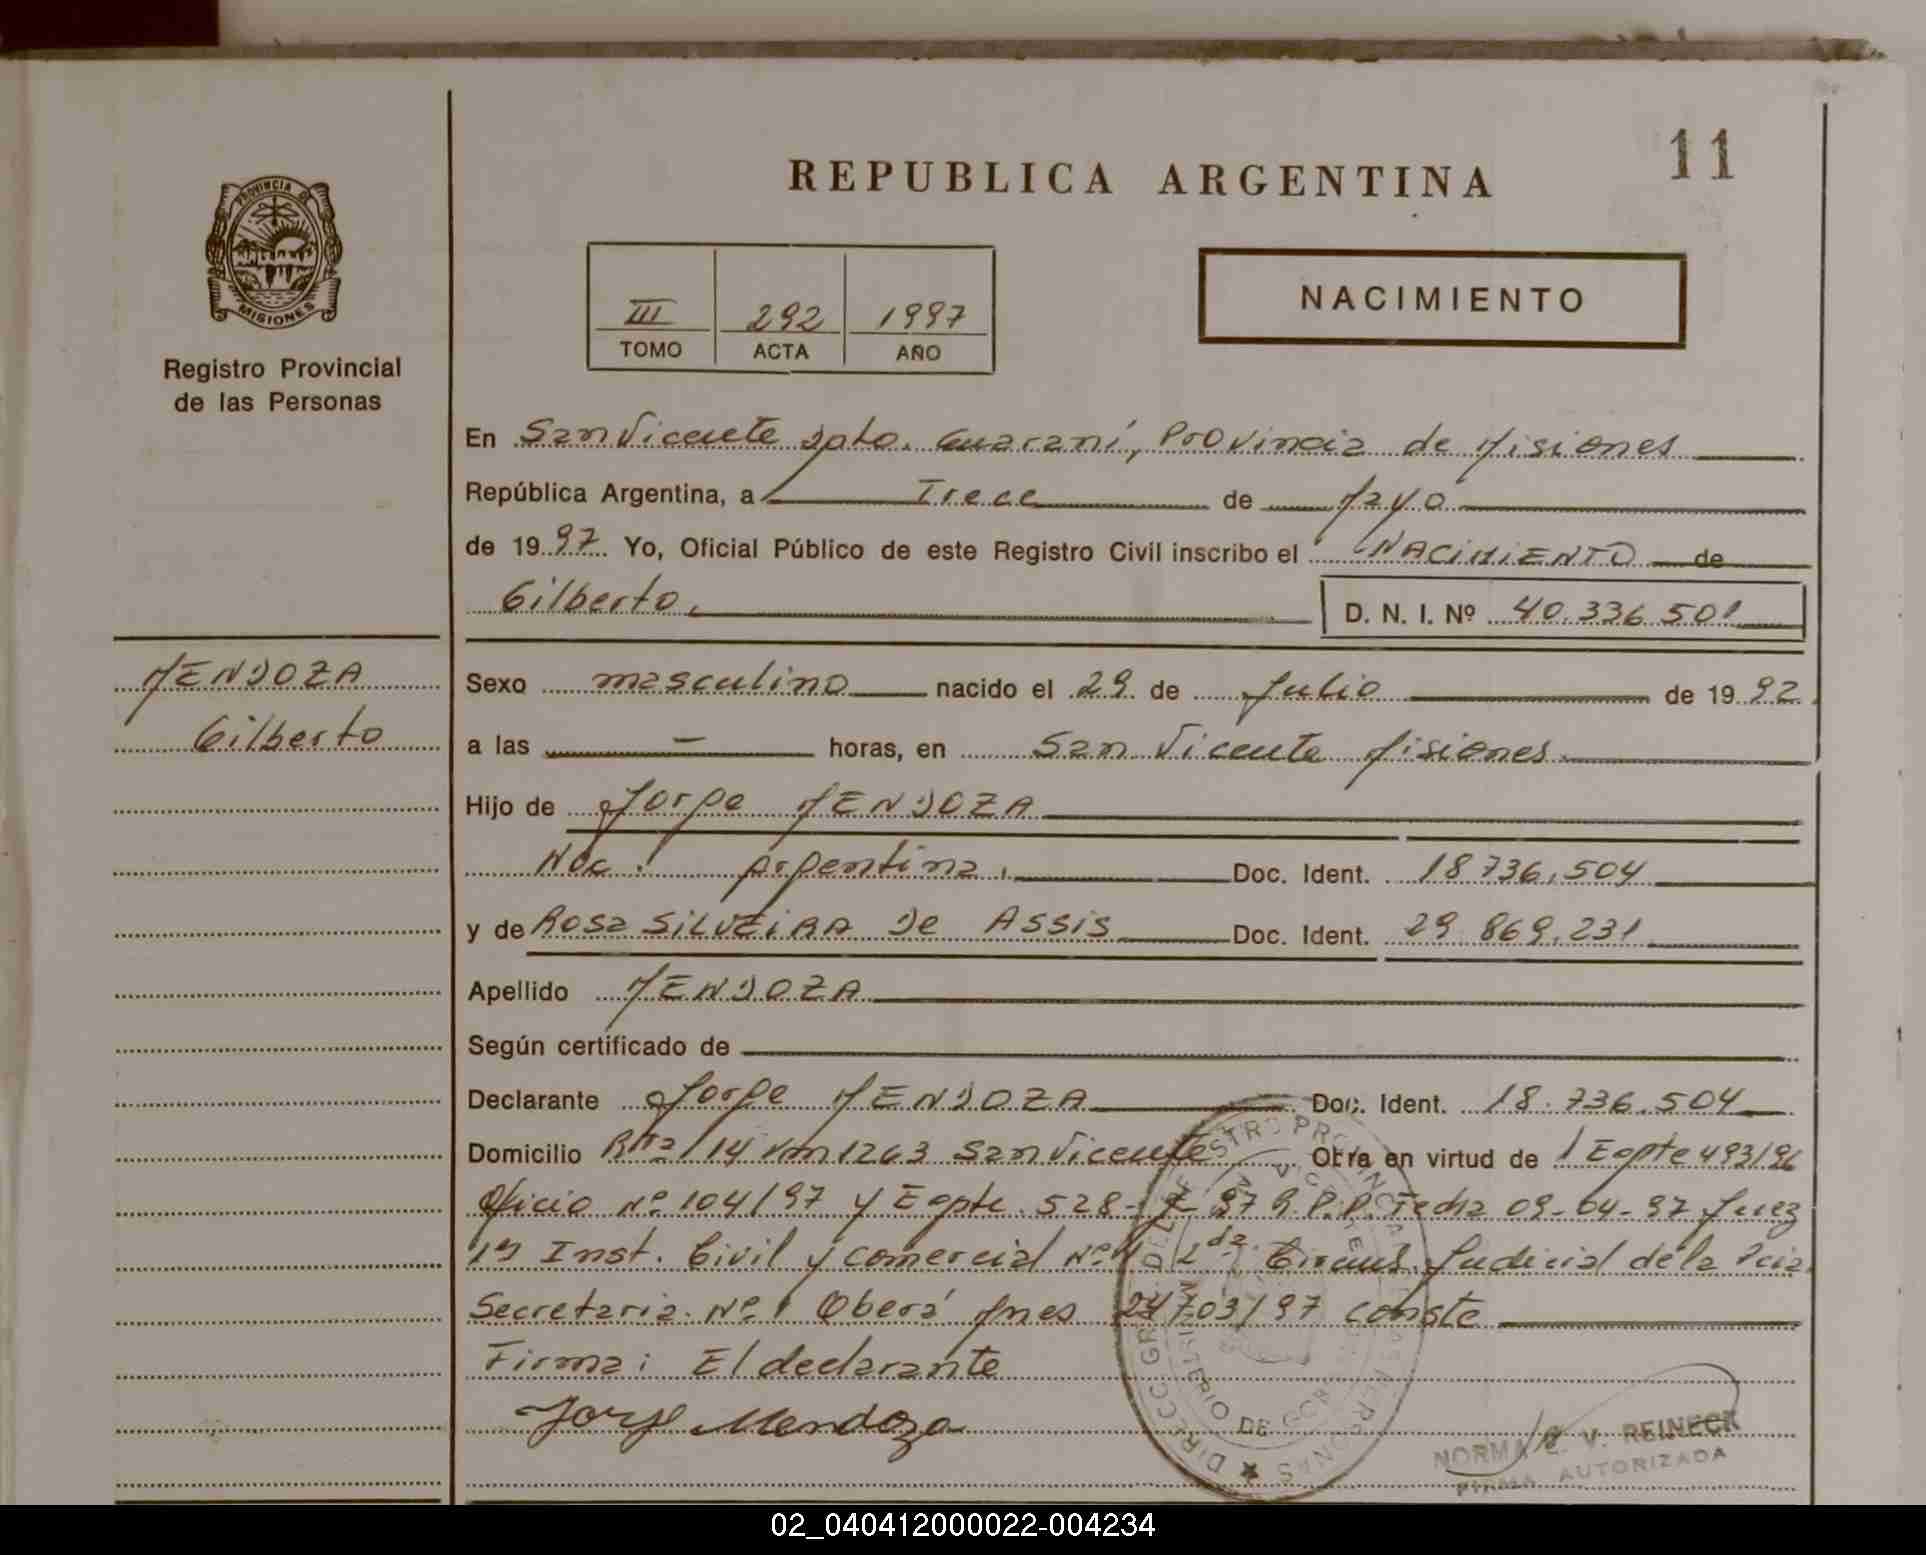 11
REPUBLICA ARGENTINA
PROVINCIA DE
MISIONES
Registro Provincial
de las Personas
III 292 1997
TOMO ACTA AÑO
NACIMIENTO
En San Vicente Dpto. Guaraní, Provincia de Misiones
República Argentina, a Trece de Mayo
de 1997 Yo, Oficial Público de este Registro Civil inscribo el NACIMIENTO de
Gilberto.
D. N. I. Nº 40.336.501
MENDOZA
Gilberto
Sexo masculino nacido el 29 de Julio de 1992
a las - horas, en San Vicente Misiones.
Hijo de Jorge MENDOZA
Nac. Argentina. Doc. Ident. 18.736.504
y de Rosa SILVEIRA De ASSIS Doc. Ident. 29.869.231
Apellido MENDOZA
Según certificado de
Declarante Jorge MENDOZA Doc. Ident. 18.736.504
Domicilio Rta 14 Km 1263 San Vicente Otra en virtud de Expte 493/96
Oficio Nº 104/97 y Expte. 528- 97 R.P.P. Fecha 09-04-97 Juez
1º Inst. Civil y comercial Nº 1 2da Circuns. Judicial de la Pcia.
Secretaria Nº 1 Oberá Mnes 24/03/97 conste
Firma: El declarante
Jorge Mendoza
NORMA V. REINECK
FIRMA AUTORIZADA
02_040412000022-004234